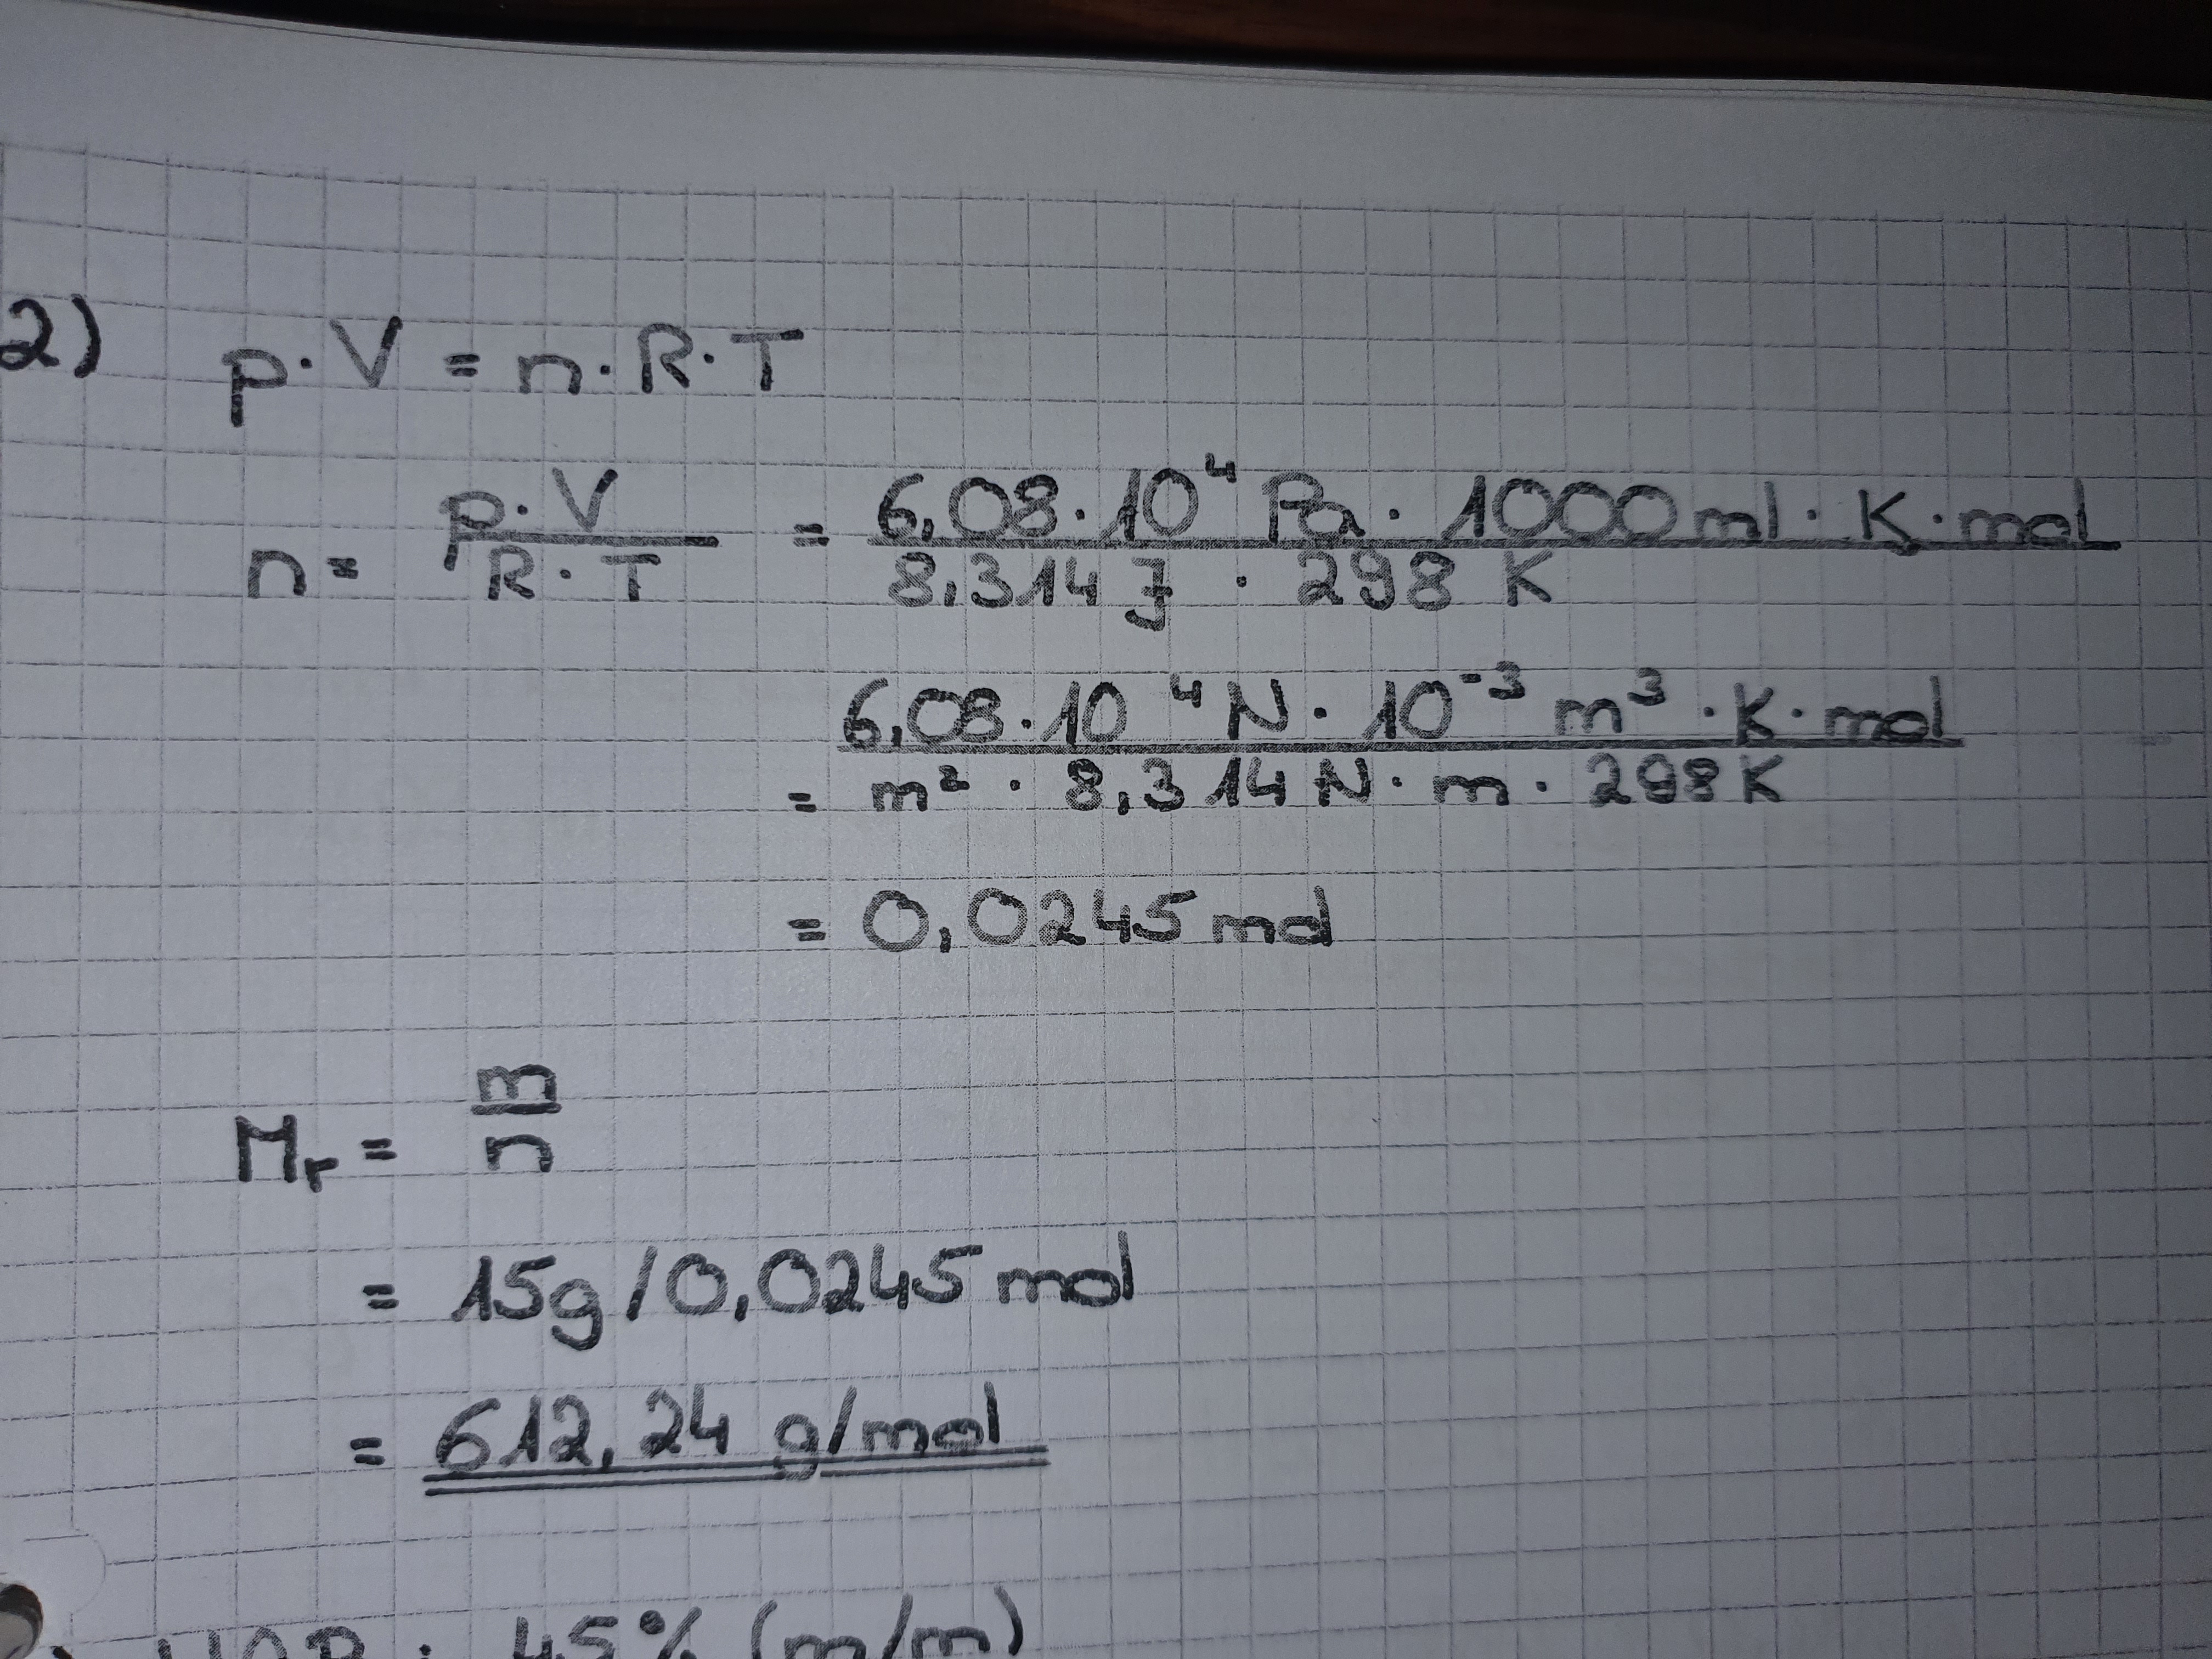 2) p · V = n · R · T
n = p · V / R · T = 6,08 · 10⁴ Pa · 1000 ml · K · mol / 8,314 J · 298 K
= 6,08 · 10⁴ N · 10⁻³ m³ · K · mol / m² · 8,314 N · m · 298 K
= 0,0245 mol
Mr = m / n
= 15g / 0,0245 mol
= 612,24 g/mol
45% (m/m)